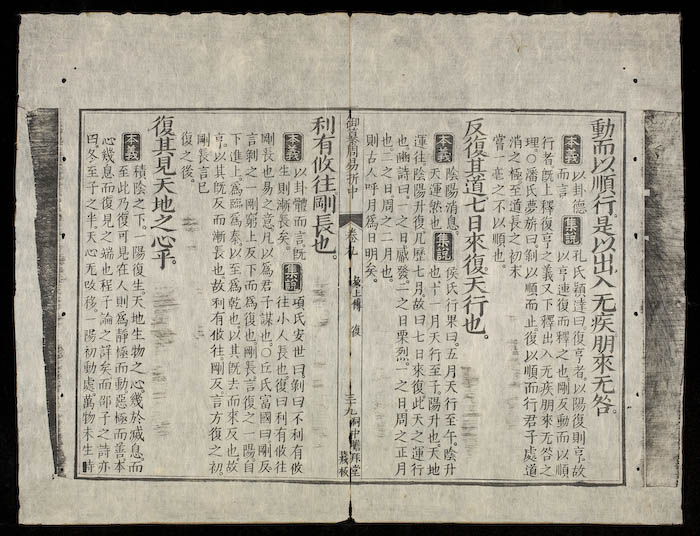 動而以順行。是以出入无疾。朋來无咎。
本義 以卦德 集說 孔氏穎達曰。復亨者。以陽復則亨。故
而言 以亨連復而釋之也。剛反動而以順
行者。旣上釋復亨之義。又下釋出入无疾朋來无咎之
理。○潘氏夢旂曰。剝以順而止。復以順而行。君子處道
消之極。至道長之初。未
嘗一毫之不以順也。
反復其道。七日來復。天行也。
本義 陰陽消息。 集說 侯氏行果曰。五月天行至午。陰升
天運然也。 也。十一月天行至子。陽升也。天地
運往。陰陽升復。凡歷七月。故曰七日來復。此天之運行
也。豳詩曰。一之日觱發。二之日栗烈。一之日。周之正月
也。二之日。周之二月也。
則古人呼月爲日明矣。
御纂周易折中 卷九 彖上傳 復 三十九
利有攸往。剛長也。
本義 以卦體而言。旣 集說 項氏安世曰。剝曰不利有攸
生則漸長矣。 往。小人長也。復曰利有攸往。
剛長也。易之意。凡以爲君子謀也。○丘氏富國曰。剛反
言剝之一剛。窮上反下而爲復也。剛長言復之一陽。自
下進上。爲臨。爲泰。以至爲乾也。以其旣去而來反也。故
亨。以其旣反而漸長也。故利有攸往。剛反言方復之初。
剛長言已
復之後。
復其見天地之心乎。
本義 積陰之下。一陽復生。天地生物之心。幾於滅息。而
至此乃復可見。在人則爲靜極而動。惡極而善。本
心幾息而復見之端也。程子論之詳矣。而邵子之詩亦
曰。冬至子之半。天心无改移。一陽初動處。萬物未生時